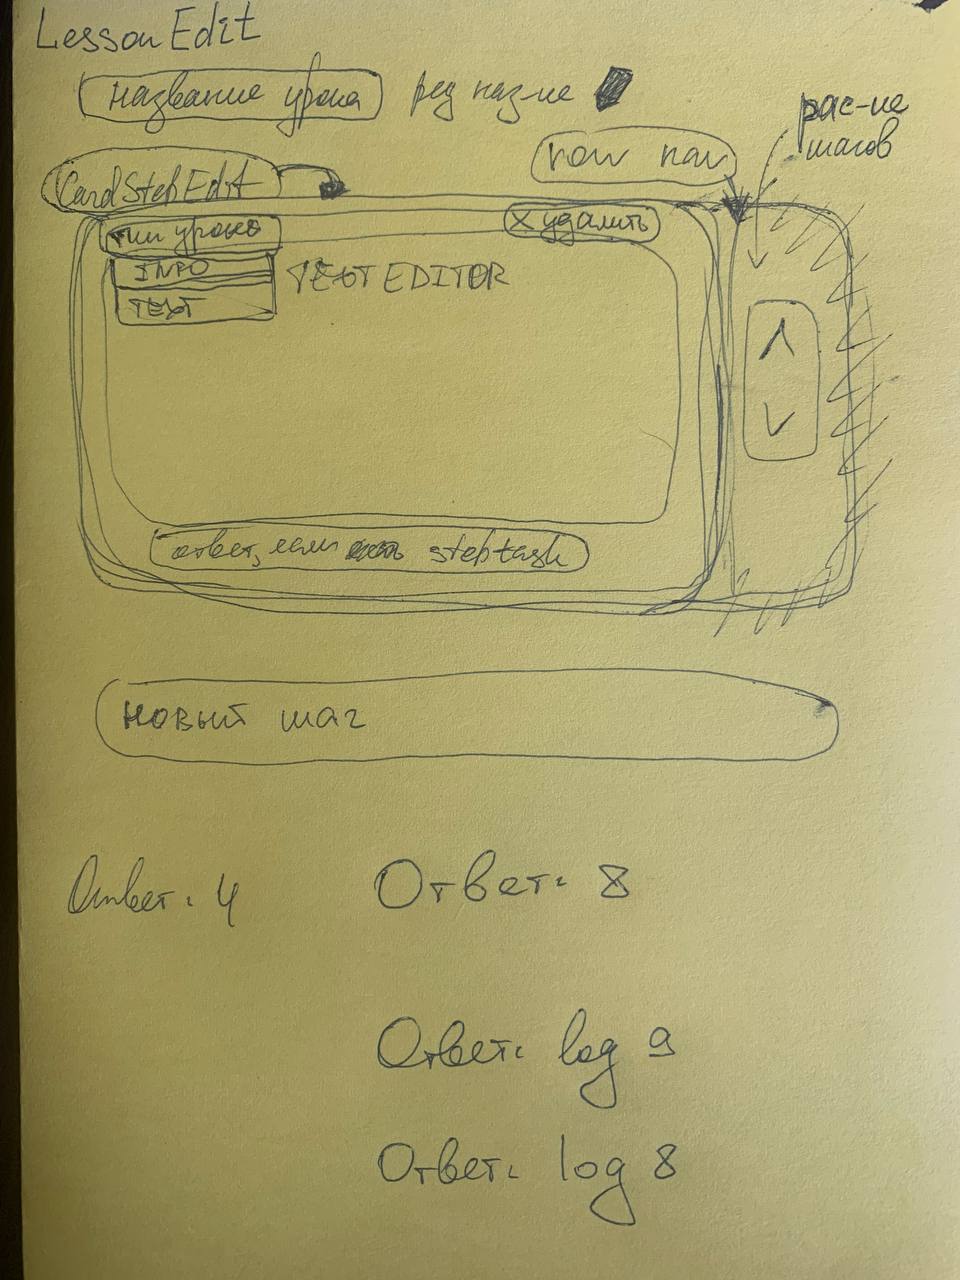 LessonEdit
название урока ред наз-ие
рас-ие
шагов
row nav
CardStepEdit
тип урока
х удалить
INFO
TEXT EDITOR
TEXT
ответ, если steptask
новый шаг
Ответ: 4
Ответ: 8
Ответ: log 9
Ответ: log 8